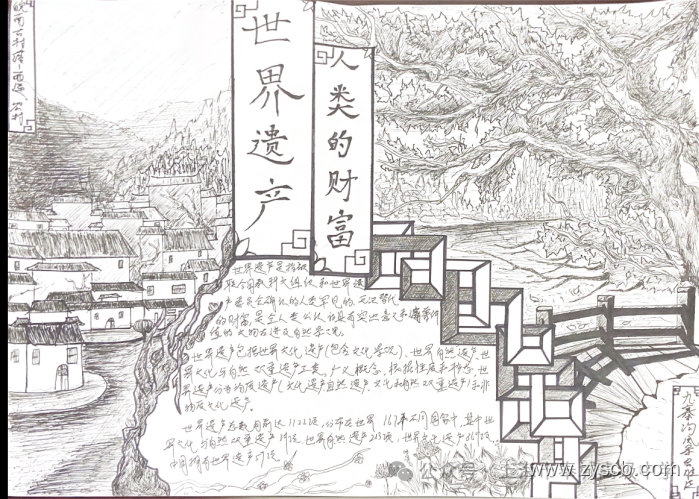 皖南古村落—西递 宏村
世界遗产
人类的财富
世界遗产是指被
联合国教科文组织和世界遗
产委员会确认的人类罕见的、无法替代
的财富,是全人类公认的具有突出意义和普遍价
值的文物古迹及自然景观。
世界遗产包括世界文化遗产(包含文化景观)、世界自然遗产、世
界文化与自然双重遗产三类。广义概念,根据性质和形态,世
界遗产分为物质遗产(文化遗产自然遗产文化和自然双重遗产)和非
物质文化遗产。
世界遗产总数目前达1122项,分布在世界167个不同国家中,其中世
界文化与自然双重遗产39项,世界自然遗产213项,世界文化遗产869项,
中国拥有世界遗产
九寨沟
公众号
www.zyscb.com